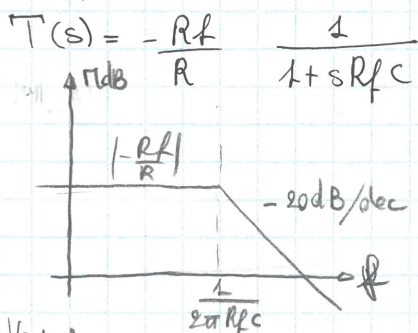 T(s) = - Rf/R 1/(1+sRfC)
|-Rf/R|
-20dB/dec
f
1/(2πRfC)